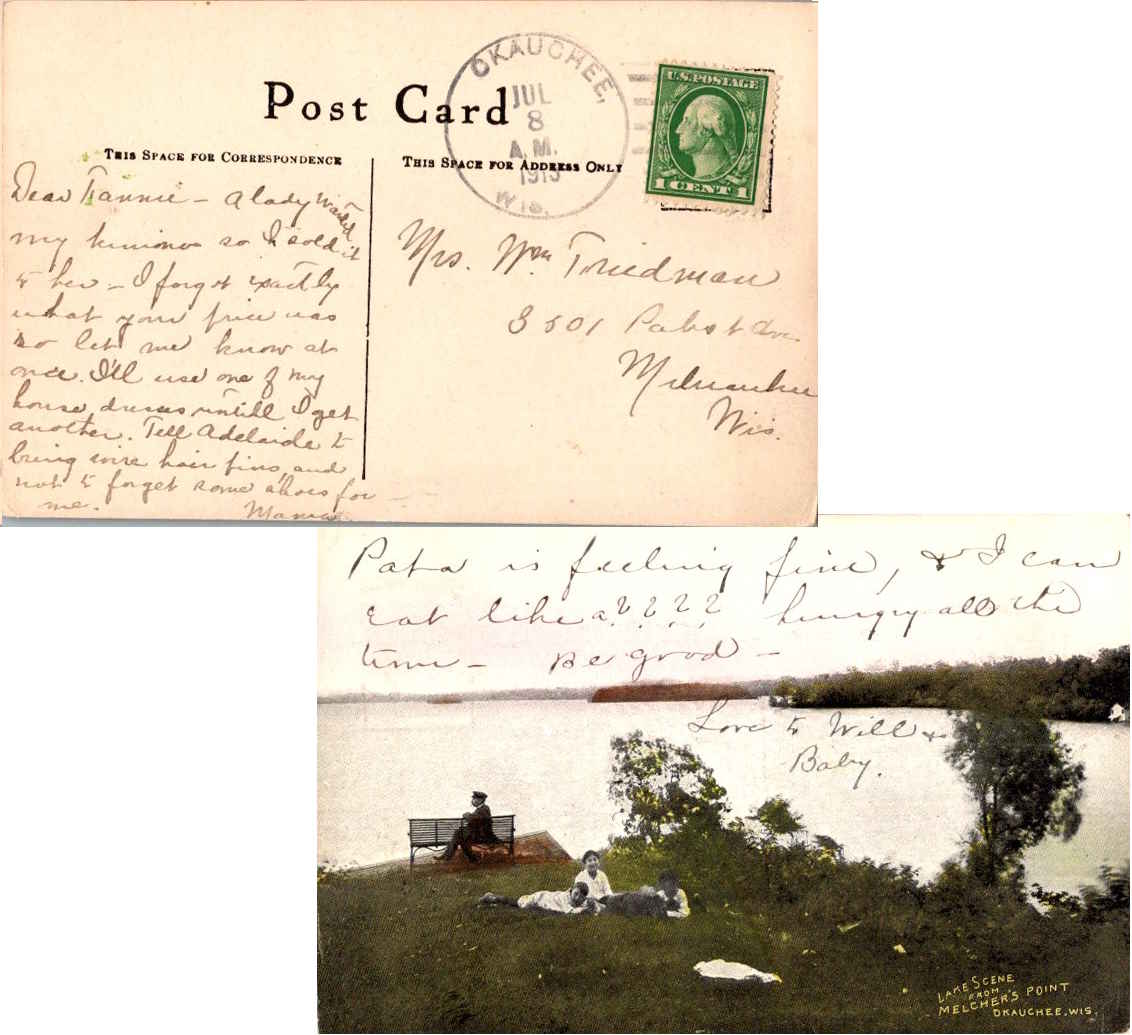 Post Card
THIS SPACE FOR CORRESPONDENCE
THIS SPACE FOR ADDRESS ONLY
OKAUCHEE,
JUL
8
A.M.
1913
WIS.
U.S. POSTAGE
1 CENT 1
Dear Fannie - a lady wanted
my kimono so I sold it
to her - I forgot exactly
what your price was
so let me know at
once. I'll use one of my
house dresses untill I get
another. Tell Adelaide to
bring wire hair pins, and
not to forget some shoes for
me. Mama
Mrs. Wm Friedman
3501 Pabst Ave
Milwaukee
Wis.
Papa is feeling fine, & I can
eat like a ? ? ? ? hungry all the
time - Be good -
Love to Will &
Baby.
LAKE SCENE
FROM
MELCHER'S POINT
OKAUCHEE, WIS.